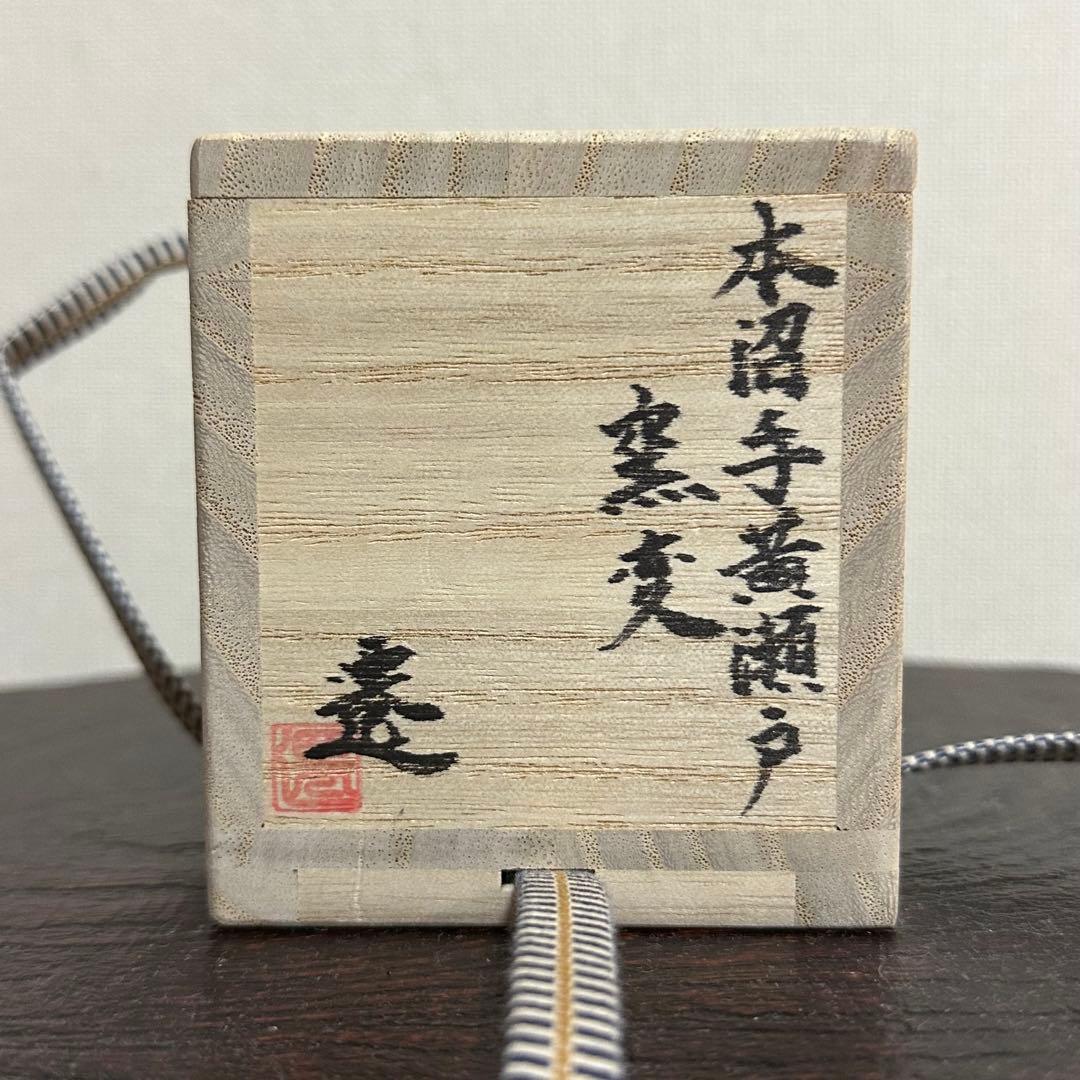 本沼手黄瀬戸
窯変